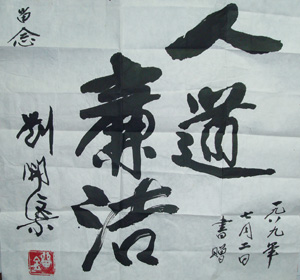 人道
廉洁
一九八九年
七月二日
書贈
留念
劉開渠